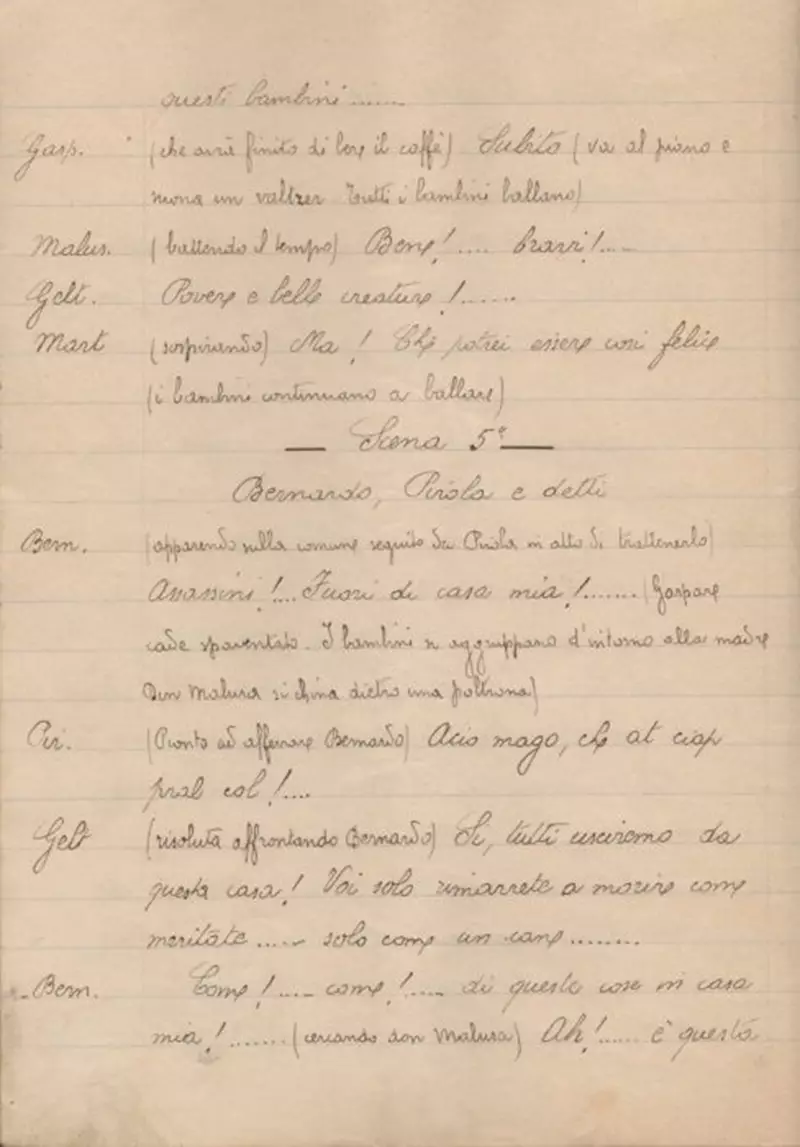 questi bambini .......
Gasp. (che avrà finito di bere il caffè) Subito (va al piano e
suona un valtzer Tutti i bambini ballano)
Malus. (battendo il tempo) Bene! .... bravi! ....
Gelt. Povere e belle creature! ......
Mart (sospirando) Ma! Che potrei essere così felice
(i bambini continuano a ballare)
— Scena 5ª —
Bernardo, Pirola e detti
Bern. (apparendo sulla comune seguito da Pirola in atto di trattenerlo)
Assassini! ... Fuori di casa mia! ....... (Gaspare
cade spaventato. I bambini si aggruppano d'intorno alla madre
Don Malusa si china dietro una poltrona)
Pir. (Pronto ad afferrare Bernardo) Acio mago, che at ciap
pral col! ....
Gelt (risoluta affrontando Bernardo) Si, tutti usciremo da
questa casa! Voi solo rimarrete a morire come
meritate ..... solo come un cane ........
Bern. Come! .... come! .... di queste cose in casa
mia! ....... (cercando don Malusa) Ah! ..... è questa